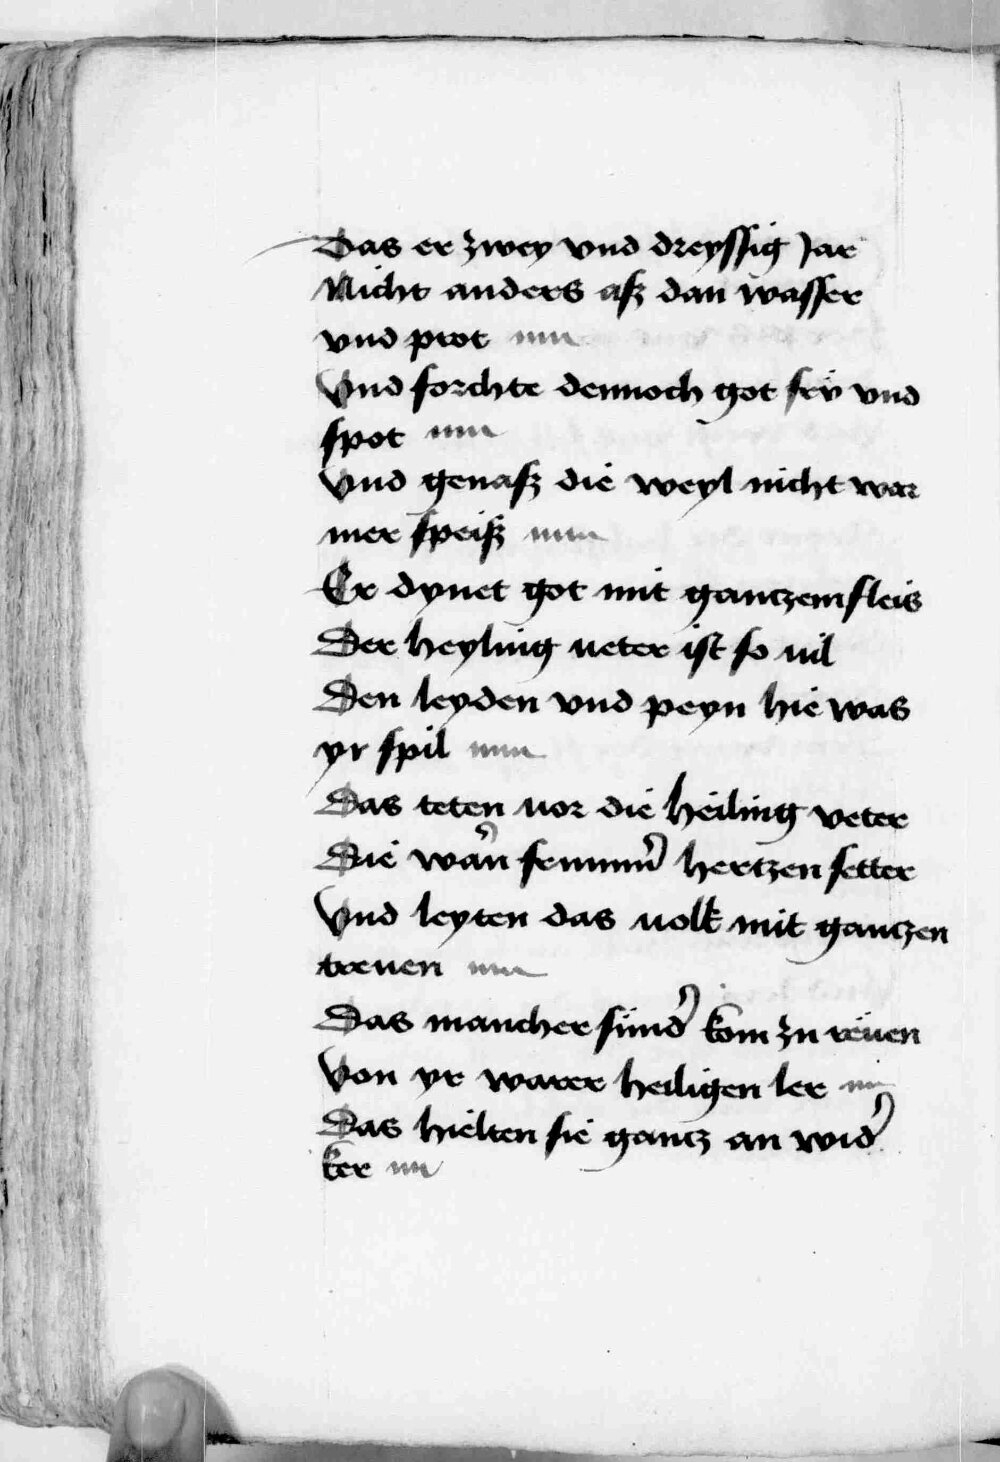 Das er zwey vnd dreyssig Jar
Nicht anders aß dan wasser
vnd prot
Vnd forchte dennoch got vnd
spot
Vnd genaß die weyl nicht war
mer speiß
Er dynet got mit gantzem fleis
Der heyling ueter ist so uil
Den leyden vnd peyn hie was
yr spil
Das teten uor die heiling veter
Die hertzen setter
Vnd leyten das uolk mit gantzen
treuen
Das mancher sünd' kom zu reüen
Von yr warer heiligen ler
Das hielten sie gantz an wid'
ker